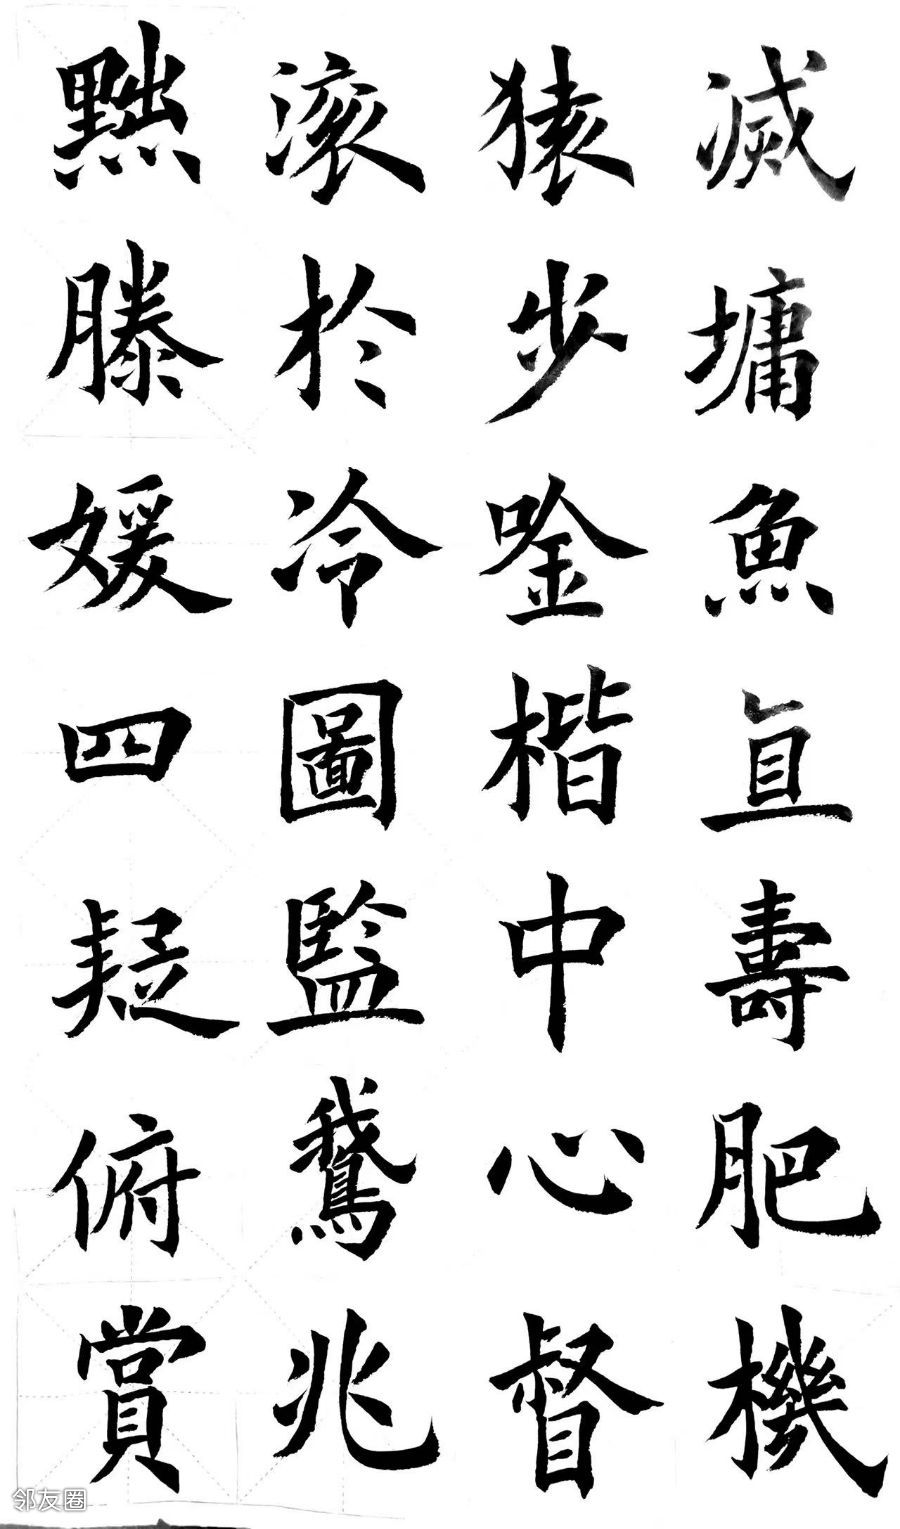 滅墉魚直壽肥機
猿步唫楷中心督
滚於冷圖監鵞兆
黜滕媛四疑俯賞
邻友圈